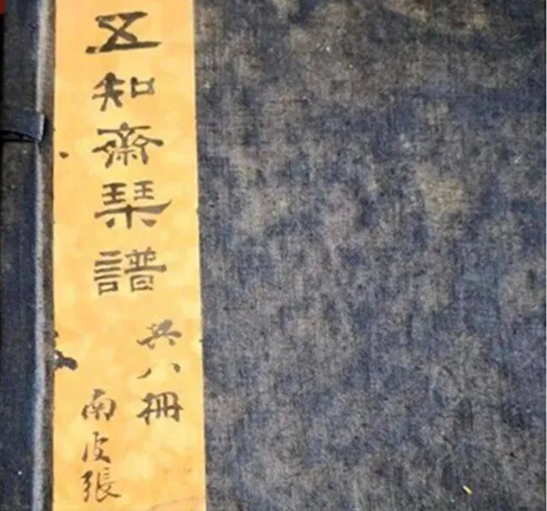 五知齋琹譜
共八冊
南皮張